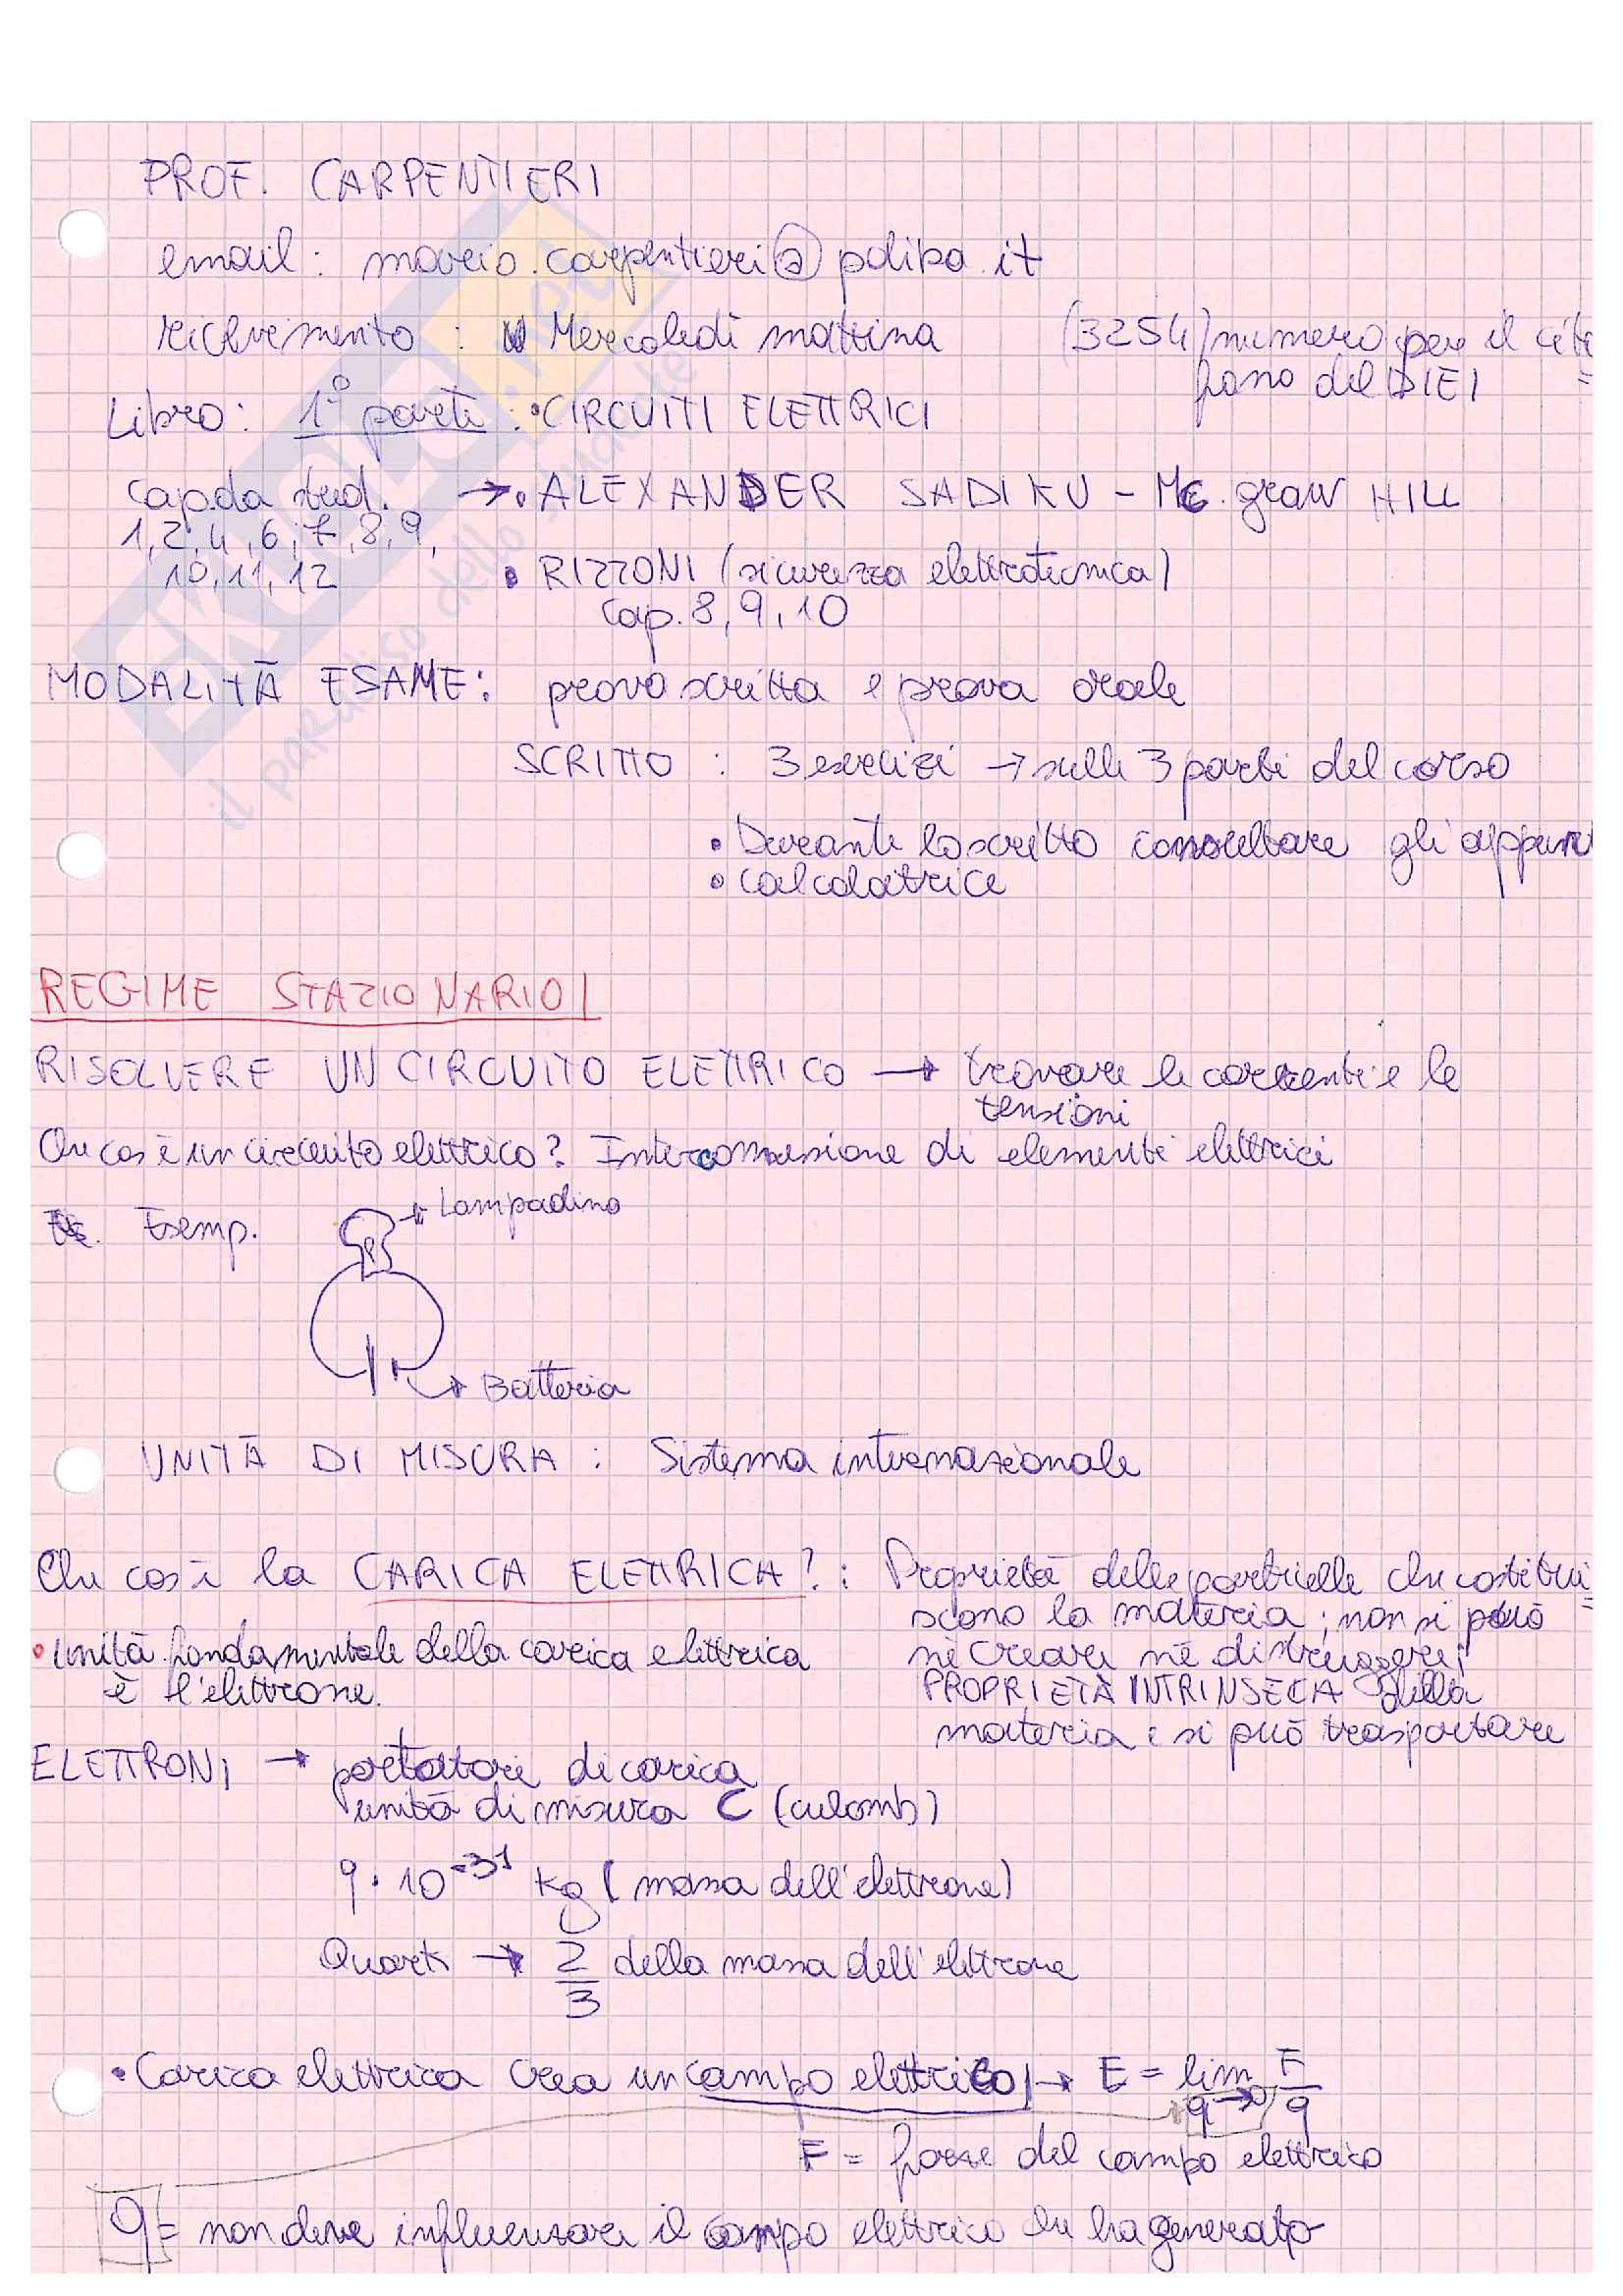 PROF. CARPENTIERI
email: marcio.carpentieri@poliba.it
ricevimento : Mercoledì mattina (3254) numero per il cito
fono del DIEI =
Libro: 1° parte : • CIRCUITI ELETTRICI
cap. da stud. → • ALEXANDER SADIKU - Mc. graw HILL
1, 2, 4, 6, 7, 8, 9,
10, 11, 12
• RIZZONI (sicurezza elettrotecnica)
cap. 8, 9, 10
MODALITÀ ESAME: prova scritta e prova orale
SCRITTO : 3 esercizi → sulle 3 parti del corso
• Durante lo scritto consultare gli appun
• calcolatrice
REGIME STAZIONARIO
RISOLVERE UN CIRCUITO ELETTRICO → trovare le correnti e le
tensioni
Che cos è un circuito elettrico? Interconnessione di elementi elettrici
Esemp. → Lampadina
→ Batteria
UNITÀ DI MISURA : Sistema internazionale
Che cos è la CARICA ELETTRICA? : Proprietà delle particelle che costitui
scono la materia ; non si può =
nè creare nè distruggere;
• unità fondamentale della carica elettrica
è l'elettrone.
PROPRIETÀ INTRINSECA della
materia ; si può trasportare
ELETTRONI → portatori di carica
unità di misura C (culomb)
9 · 10⁻³¹ kg (massa dell'elettrone)
Quark → 2/3 della massa dell'elettrone
• Carica elettrica crea un campo elettrico → E = lim q→0 F/q
F = forze del campo elettrico
q = non deve influenzare il campo elettrico che ha generato
SKUOLA.net
il paradiso dello studente